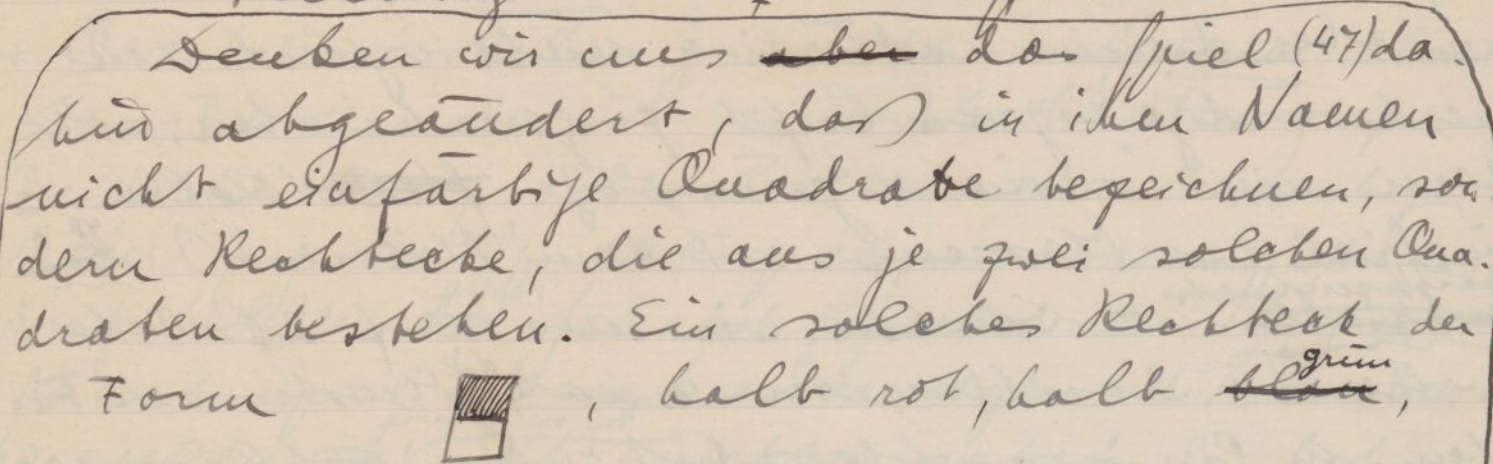 Denken wir uns aber das Spiel (47) da-
hin abgeändert, daß in ihm Namen
nicht einfärbige Quadrate bezeichnen, son-
dern Rechtecke, die aus je zwei solchen Qua-
draten bestehen. Ein solches Rechteck der
grün
Form , halb rot, halb blau,